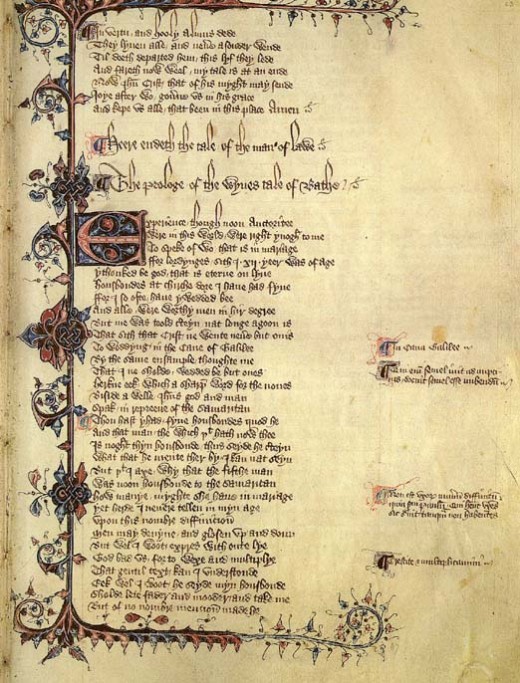 In vertu and hooly almus dede
They lyuen alle and neuere asonder wende
Til deeth departed hem this lyf they lede
And fareth now weel my tale is at an ende
Now Ihū Crist that of his myght may sende
Ioye after wo gouerne vs in his grace
And kepe vs alle that been in this place Amen
Heere endeth the tale of the man of Lawe
The prologe of the wyues tale of Bathe
Experience though noon Auctoritee
Were in this world were right ynogh to me
To speke of wo that is in mariage
ffor lordynges sith I .xij. yeer was of age
ythonked be god that is eterne on lyue
housbondes at chirche dore I haue had fyue
ffor I so ofte haue ywedded bee
And alle were worthy men in hir degree
But me was toold certeyn nat longe agoon is
That sith that Crist ne wente neuere but onis
To weddyng in the Cane of Galilee
By the same ensample thoughte me
That I ne sholde wedded be but ones
herkne eek which a sharp word for the nones
Biside a welle Ihūs god and man
Spak in repreeue of the Samaritan
Thou hast yhad fyue housbondes quod he
And that man the which þt hath now thee
Is noght thyn housbonde thus seyde he certeyn
What that he mente ther by I kan nat seyn
But þt I axe why that the fifthe man
Was noon housbonde to the Samaritan
how manye myghte she haue in mariage
yet herde I neuere tellen in myn age
vpon this nombre diffinicioun
Men may deuyne and glosen vp and doun
But wel I woot expres with oute lye
God bad vs for to wexe and multiplye
That gentil text kan I vnderstonde
Eek wel I woot he seyde myn housbonde
Sholde lete fader and mooder and take me
But of no nombre mencion made he
In Cana Galilee